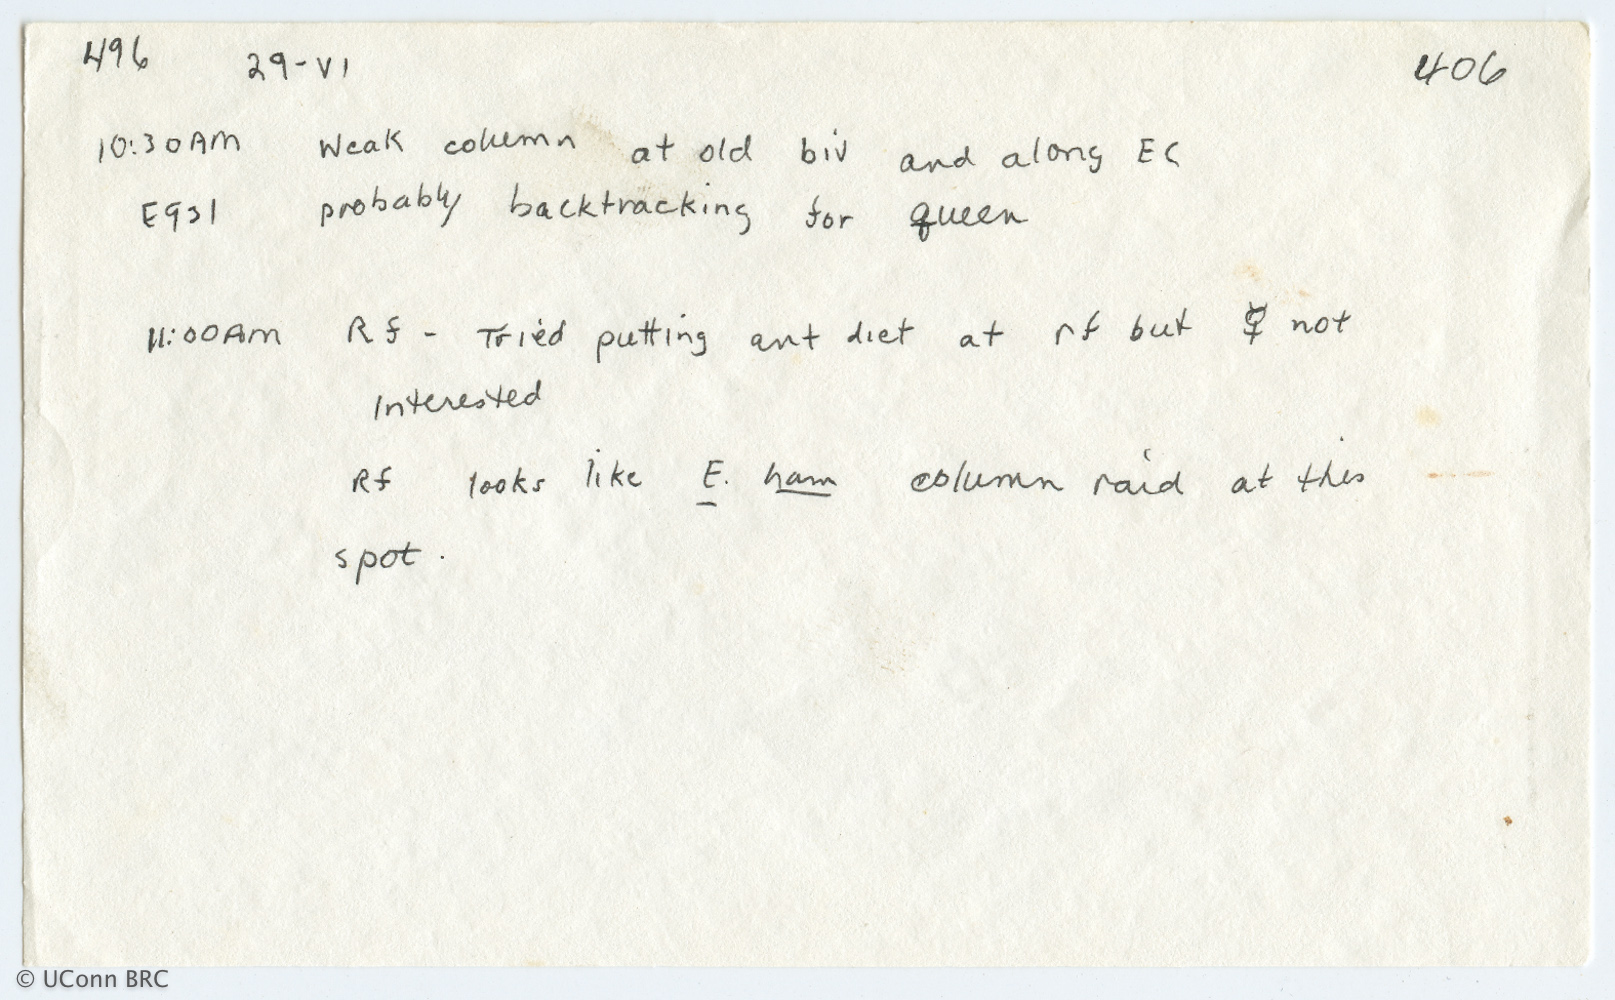 496 29-VI 406
10:30AM Weak column at old biv and along EC
E931 probably backtracking for queen
11:00AM Rf - Tried putting ant diet at rf but ☿ not
interested
Rf looks like E. ham column raid at this
spot.
© UConn BRC